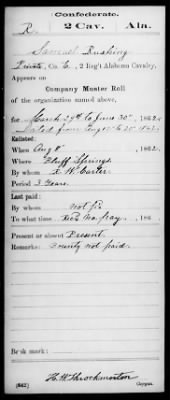 Confederate.
R. 2 Cav. Ala.
Samuel Rushing
Private, Co. E, 2 Reg't Alabama Cavalry.
Appears on
Company Muster Roll
of the organization named above,
for March 29th to June 30th, 1862.
Dated from Aug 10th to 20th 1862
Enlisted:
When Aug 8, 1862.
Where Bluff Springs
By whom R W Carter
Period 3 Years
Last paid:
By whom not pd
To what time Rec'd no pay, 186
Present or absent Present.
Remarks: Bounty not paid.
Book mark:
H. W. Throckmorton
(642) Copyist.